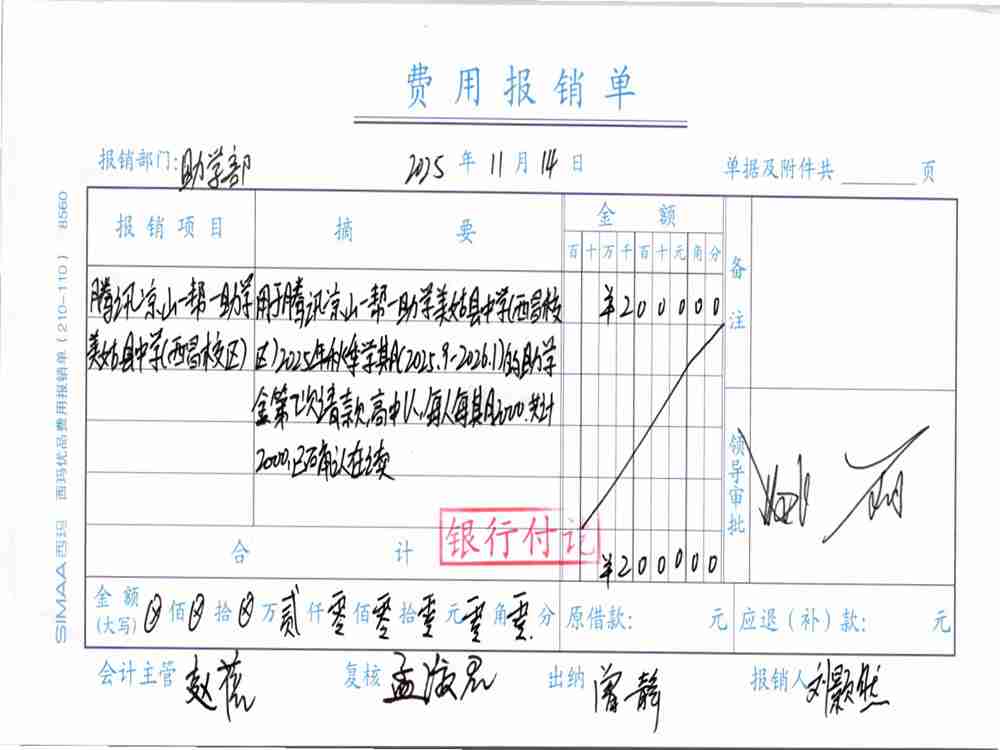 费用报销单
报销部门:助学部 2025年11月14日 单据及附件共 页
报销项目 摘要 金额 备注
百十万千百十元角分
腾讯凉山一帮一助学 用于腾讯凉山一帮一助学美姑县中学(西昌校 ¥200000
美姑县中学(西昌校区) 区)2025年秋季学期(2025.9-2026.1)的助学
金第 次请款,高中1人,每人每期2000.共计
2000,已确认在读 领导审批
银行付讫
合计 ¥200000
金额(大写) ⊗佰⊗拾⊗万贰仟零佰零拾零元零角零分 原借款: 元 应退(补)款: 元
会计主管 赵 复核 孟 出纳 曾静 报销人 刘颢然
SIMAA西玛 西玛优品费用报销单(210-110) 8560